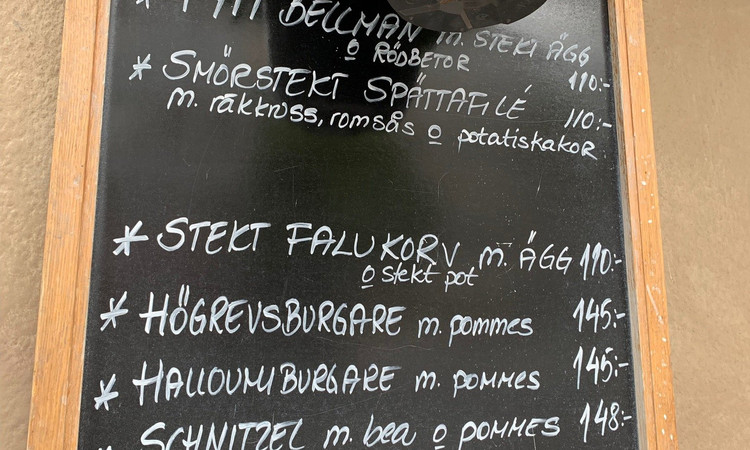 * PYTT BELLMAN m. STEKT ÄGG
o RÖDBETOR 110:-
* SMÖRSTEKT SPÄTTAFILÉ 110:-
m. räkkross, romsås o potatiskakor
* STEKT FALUKORV m. ÄGG 110:-
o stekt pot
* HÖGREVSBURGARE m. pommes 145:-
* HALLOUMIBURGARE m. POMMES 145:-
* SCHNITZEL m. bea o POMMES 148:-